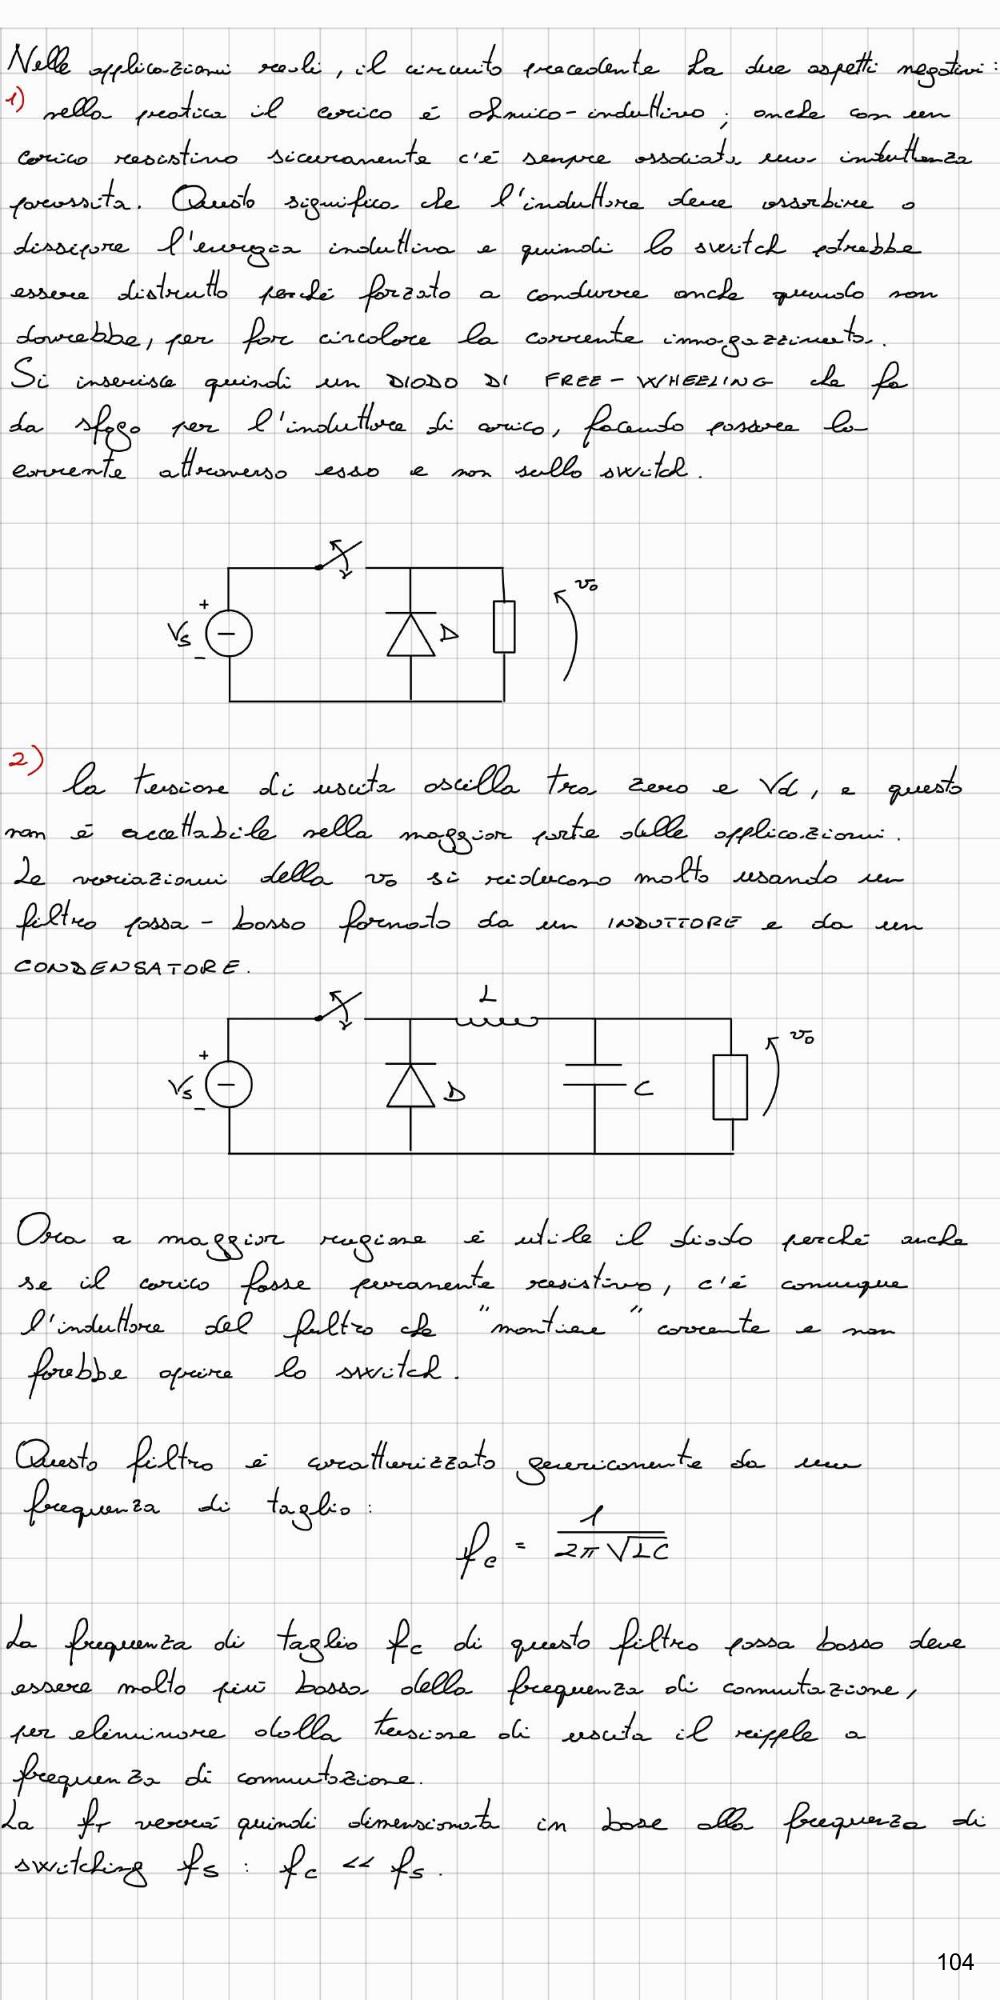 Nelle applicazioni reali, il circuito precedente ha due aspetti negativi:
1) nella pratica il carico é ohmico-induttivo; anche con un
carico resistivo sicuramente c'é sempre associata una induttanza
parassita. Questo significa che l'induttore deve assorbire o
dissipare l'energia induttiva e quindi lo switch potrebbe
essere distrutto perché forzato a condurre anche quando non
dovrebbe, per far circolare la corrente immagazzinata.
Si inserisce quindi un DIODO DI FREE-WHEELING che fa
da sfogo per l'induttore di carico, facendo passare la
corrente attraverso esso e non sullo switch.
Vs + - D vo
2) la tensione di uscita oscilla tra zero e Vd, e questo
non é accettabile nella maggior parte delle applicazioni.
Le variazioni della vo si riducono molto usando un
filtro passa-basso formato da un INDUTTORE e da un
CONDENSATORE.
L
Vs + - D C vo
Ora a maggior ragione é utile il diodo perché anche
se il carico fosse puramente resistivo, c'é comunque
l'induttore del filtro che "mantiene" corrente e non
farebbe aprire lo switch.
Questo filtro é caratterizzato genericamente da una
frequenza di taglio:
fc = 1 / 2π √LC
La frequenza di taglio fc di questo filtro passa basso deve
essere molto più bassa della frequenza di commutazione,
per eliminare dalla tensione di uscita il ripple a
frequenza di commutazione.
La fT verrà quindi dimensionata in base alla frequenza di
switching fs : fc << fs.
104